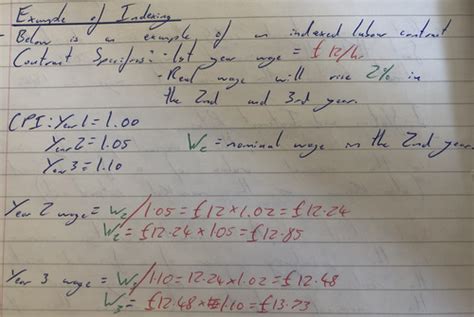 Example of Indexing
- Below is an example of an indexed labour contract
Contract Specifies: - 1st year wage = £12/hr
- Real wage will rise 2% in
the 2nd and 3rd year.
CPI: Year 1 = 1.00
Year 2 = 1.05 W₂ = nominal wage in the 2nd year
Year 3 = 1.10
Year 2 wage = W₂/1.05 = £12 x 1.02 = £12.24
W₂ = £12.24 x 1.05 = £12.85
Year 3 wage = W₃/1.10 = 12.24 x 1.02 = £12.48
W₃ = £12.48 x 1.10 = £13.73